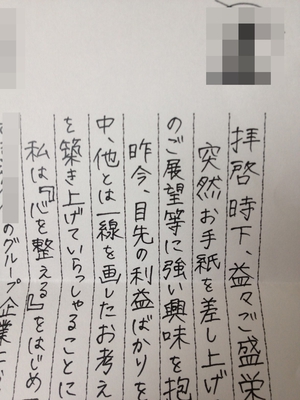 拝啓 時下、益々ご盛栄
突然お手紙を差し上げ
のご展望等に強い興味を抱
昨今、目先の利益ばかりを
中、他とは一線を画したお考え
を築き上げていらっしゃることに
私は『心を整える』をはじめ
のグループ企業に